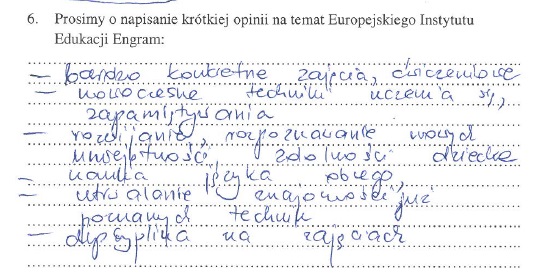 6. Prosimy o napisanie krótkiej opinii na temat Europejskiego Instytutu
Edukacji Engram:
– bardzo konkretne zajęcia, ćwiczeniowe
– nowoczesne techniki uczenia się,
zapamiętywania
– rozwijanie, rozpoznawanie nowych
umiejętności, zdolności dziecka
– nauka języka obcego,
– utrwalanie znajomości już
poznanych technik
– dyscyplina na zajęciach